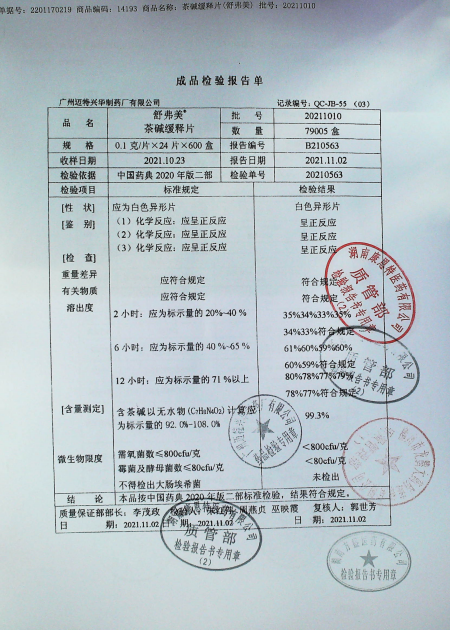 单据号: 2201170219 商品编码: 14193 商品名称: 茶碱缓释片(舒弗美) 批号: 20211010
成品检验报告单
广州迈特兴华制药厂有限公司 记录编号: QC-JB-55 (03)
品名 舒弗美® 茶碱缓释片 批号 20211010
数量 79005 盒
规格 0.1 克/片×24 片×600 盒 报告编号 B210563
收样日期 2021.10.23 报告日期 2021.11.02
检验依据 中国药典 2020 年版二部 检验单号 20210563
检验项目 标准规定 检验结果
[性 状] 应为白色异形片 白色异形片
[鉴 别] (1) 化学反应: 应呈正反应 呈正反应
(2) 化学反应: 应呈正反应 呈正反应
(3) 化学反应: 应呈正反应 呈正反应
[检 查]
重量差异 应符合规定 符合规定
有关物质 应符合规定 符合规定
溶出度 2 小时: 应为标示量的 20%~40 % 35%34%33%35%
34%33%符合规定
6 小时: 应为标示量的 40 %~65 % 61%60%59%60%
60%59%符合规定
12 小时: 应为标示量的 71 %以上 80%78%77%79%
78%77%符合规定
[含量测定] 含茶碱以无水物 (C7H8N4O2) 计算应 99.3%
为标示量的 92.0%-108.0%
微生物限度 需氧菌数≤800cfu/克 <800cfu/克
霉菌及酵母菌数≤80cfu/克 <80cfu/克
不得检出大肠埃希菌 未检出
结 论 本品按中国药典 2020 年版二部标准检验，结果符合规定。
质量保证部部长: 李茂政 周燕贞 巫映霞 复核人: 郭世芳
日 期: 2021.11.02 日 期: 2021.11.02 日 期: 2021.11.02
质管部
检验报告书专用章
(2)
质管部
检验报告书专用章
(2)
质管部
检验报告书专用章
(2)
检验报告书专用章